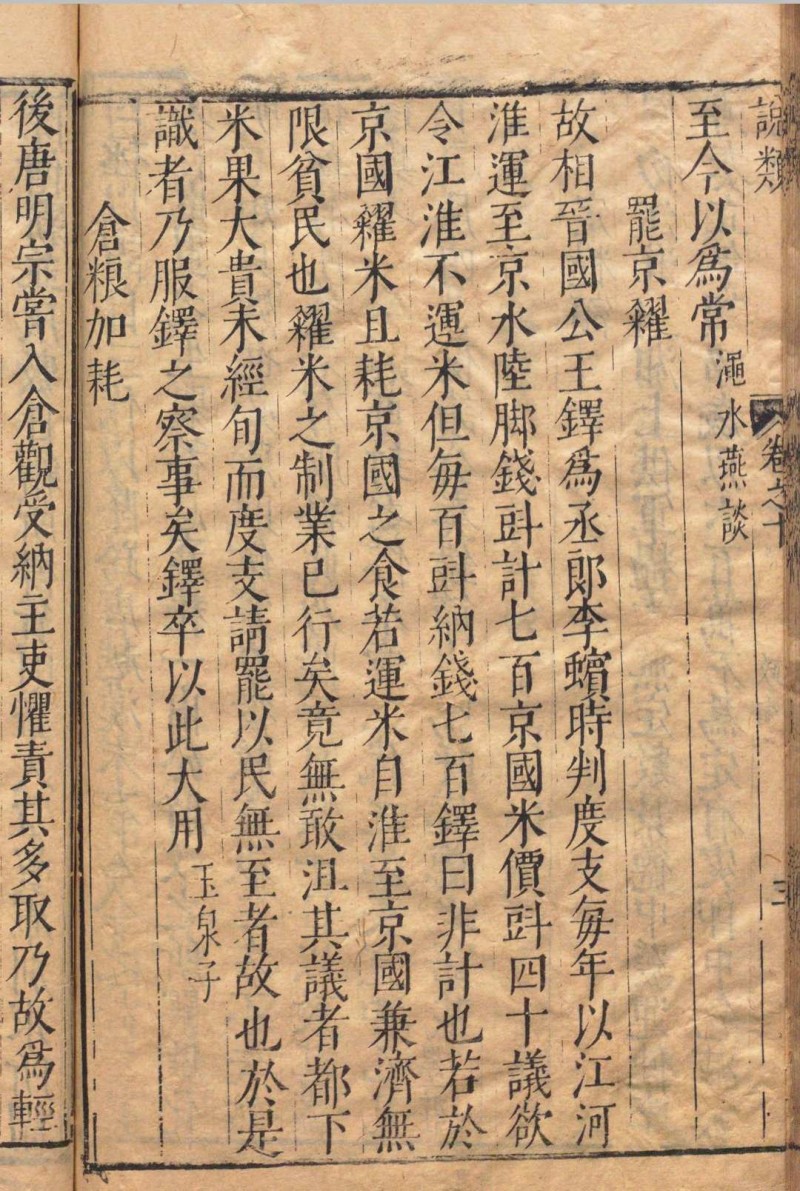 說類
卷之十
三
至今以爲常 澠水燕談
罷京糴
故相晉國公王鐸爲丞郎李蠙時判度支每年以江河
淮運至京水陸脚錢㪷計七百京國米價㪷四十議欲
令江淮不運米但每百㪷納錢七百鐸曰非計也若於
京國糴米且耗京國之食若運米自淮至京國兼濟無
限貧民也糴米之制業已行矣竟無敢沮其議者都下
米果大貴未經旬而度支請罷以民無至者故也於是
識者乃服鐸之察事矣鐸卒以此大用 玉泉子
倉粮加耗
後唐明宗嘗入倉觀受納主吏懼責其多取乃故爲輕